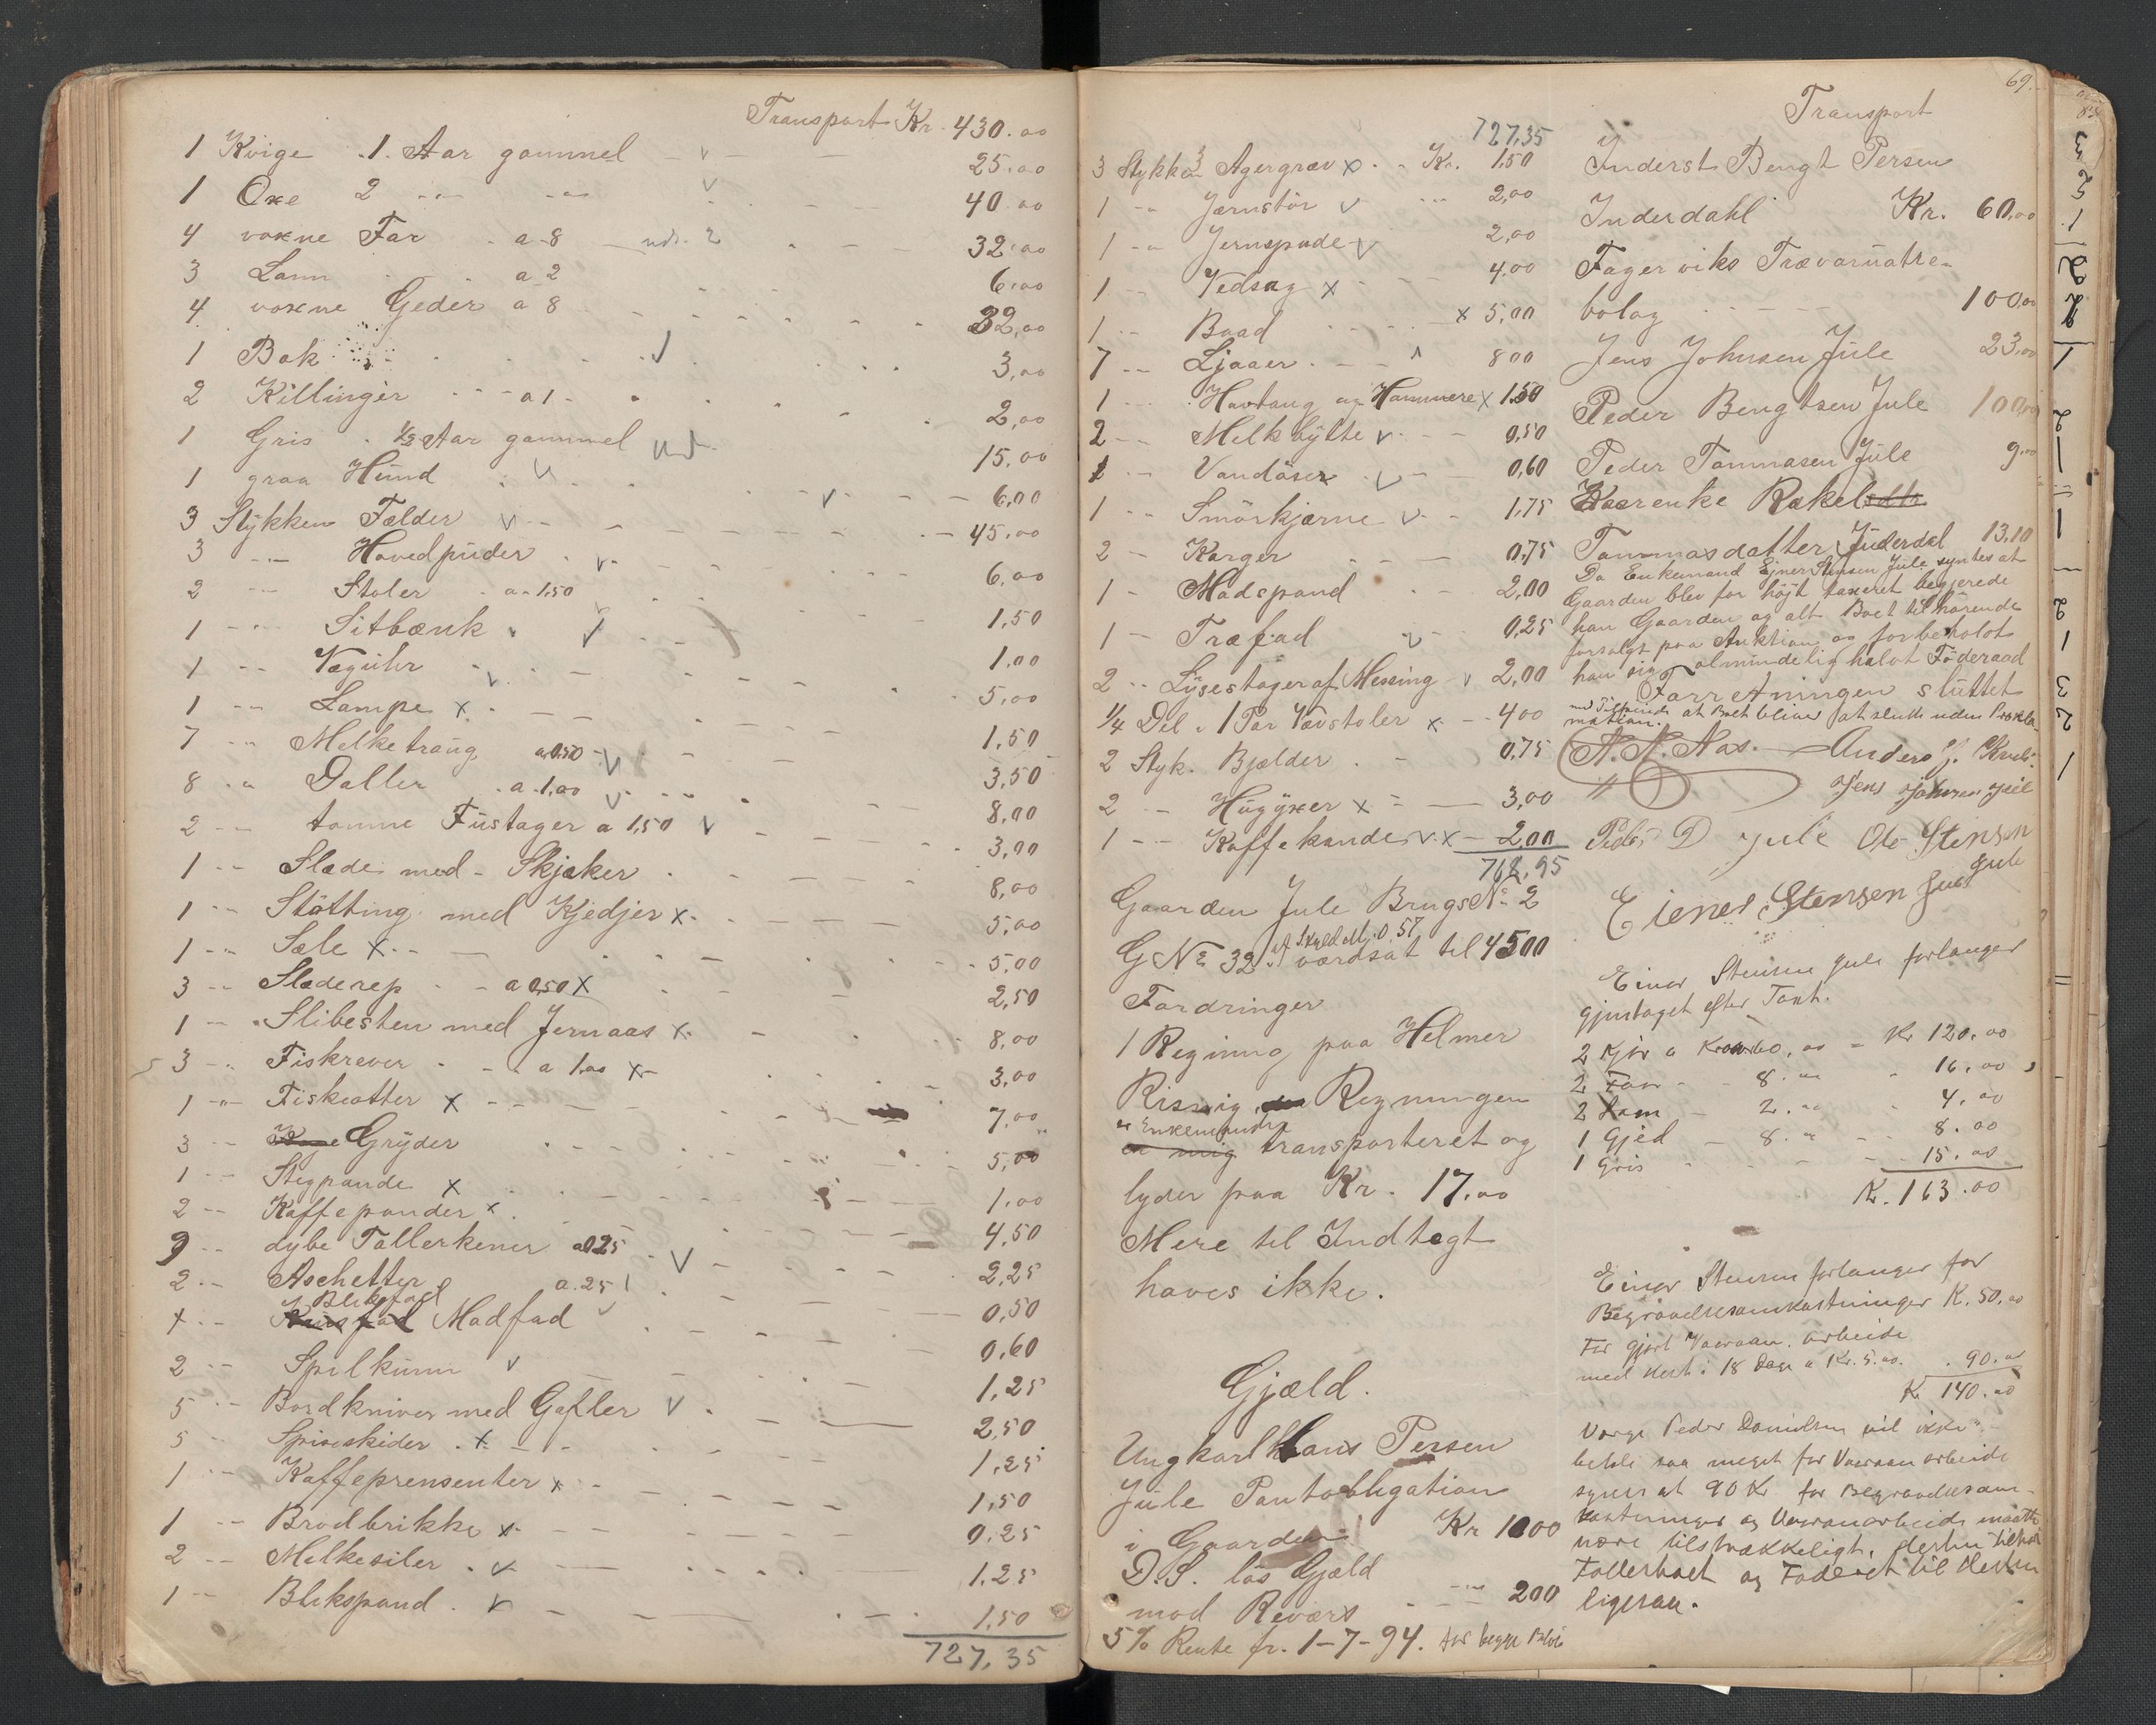 Transport Kr. 430.00
1 Kvige .1. Aar gammel 25.00
1 Oxe 2 -"- -"- 40.00
4 voxne Faar a 8 32.00
3 Lam a 2 6.00
4 voxne Geder a 8 32,00
1 Bok 3,00
2 Killinger a 1 2,00
1 Gris ½ Aar gammel 15,00
1 graa Hund 6,00
3 Stykken Fælder 45.00
3 -"- Hovedpuder 6.00
2 -"- Stoler a 1.50
1 -"- Sitbænk 1,50
1 -"- Væguhr 1.00
1 -"- Lampe x 5,00
7 -"- Melketraug a 0.50 1,50
8 -"- Daller a 1,00 3,50
2 -"- tomme Fustager a 1,50 8,00
1 -"- Slæde med Skjæker 3,00
1 -"- Støtting med Kjedjer x 8,00
1 -"- Sæle x 5,00
3 -"- Slæderep a 0,50 x 5,00
1 -"- Slibesten med Jernaas x 2,50
3 -"- Fiskrever a 1.00 x 8,00
1 -"- Fiskeotter x 3,00
3 -"- Gryder 7,00
1 -"- Stegpande x 5,00
2 -"- Kaffepander x 1,00
9 -"- dybe Tallerkener a 025 4,50
2 -"- Aschetter a. 25 2,25
Blikfad
x -"- Madfad 0,50
2 -"- Spilkum 0,60
5 -"- Bordkniver med Gafler 1,25
5 -"- Spiseskider x 2,50
1 -"- Kaffeprensenter x 1,25
1 -"- Brødbrikke x 1,50
2 -"- Melkesiler 0.25
1 -"- Blikspand 1.25
1,50
727,35
727,35
3 Stykken Agergrev x Kr. 1,50
1 -"- Jærnstør 2,00
1 -"- Jernspade 2,00
1 -"- Vedsag x 4,00
1 -"- Baad x 5,00
7 -"- Ljaaer 8 00
1 -"- Hovtang og Hammere x 1.50
2 -"- Melkbytte 0,50
1 -"- Vandøser 0,60
1 -"- Smørkjærne 1,75
2 - Karger 0,75
1 - Madspand 2,00
1 - Træfad 0,25
2 -"- Lysestager af Messing 2,00
¼ Del i 1 Par Vævstoler x 4 00
2 Styk. Bjælder 0,75
2 -"- Hugyxer x 3,00
1 -"- Kaffekander x 2,00
768,95
Gaarden Jule Brugs No 2
af Skyld M. 0.57
G No 32 værdsat til 4500
Fordringer
1 Regning paa Helmer
Risvig, Regningen
er Enkemandens
er mig transporteret og
lyder paa Kr. 17.00
Mere til Indtægt
haves ikke.
Gjæld.
Ungkarl Hans Persen
Jule Pantobligation
i Gaarden Kr 1000
D.S. løs Gjæld
mod Revers -"- 200
5% Rente fr. 1-7-94. for begge Beløb
69.
Transport
Inderst Bengt Persen
Inderdahl Kr. 60,00
Fagerviks Trævaruatre-
bolag 100,00
Jens Johnsen Jule 23,00
Peder Bengtsen Jule 100,00
Peder Tommasen Jule 9,00
Kaarenke Rakel
Tommasdatter Inderdal 13,10
Da Enkemand Ejner Stensen Jule syntes at
Gaarden blev for høgt taxeret begjerede
han Gaarden og alt Boet tilhørende
forsolgt paa Auktion og forbeholdt
han sig almindelig halvt Føderaad
Forretningen sluttet
med Tilføiende at Boet bliver at slutte uden Prokla-
mation.
N. N. Nas. Anders J.
Jens Johnsen Juil
Peder D Jule Ole Stensen
Jule
Eiener Stensen Jule
Einar Stensen Jule forlanger
gjentaget efter Taxt.
2 Kjør a Kroner 60,00 - Kr 120.00
2 Faar - 8.00 - 16.00
2 Lam - 2.00 - 4.00
1 Gjed - 8.00 - 8.00
1 Gris - 15.00
Kr. 163.00
Einar Stensen forlanger for
Begravelsesomkostninger K. 50,00
For gjort Vaaraan. arbeide
med Hest i 18 Dage a Kr. 5.00. 90.00
Kr 140.00
Værge Peder Danielsen vil ikke
betale saa meget for Vaaraan arbeide
synes at 90 Kr for Begravelsesom-
kostninger og Vaaraanarbeide maatte
være tilstrækkeligt. Hesten tilhør
Fællesboet og Foderet til Hesten
ligesaa.